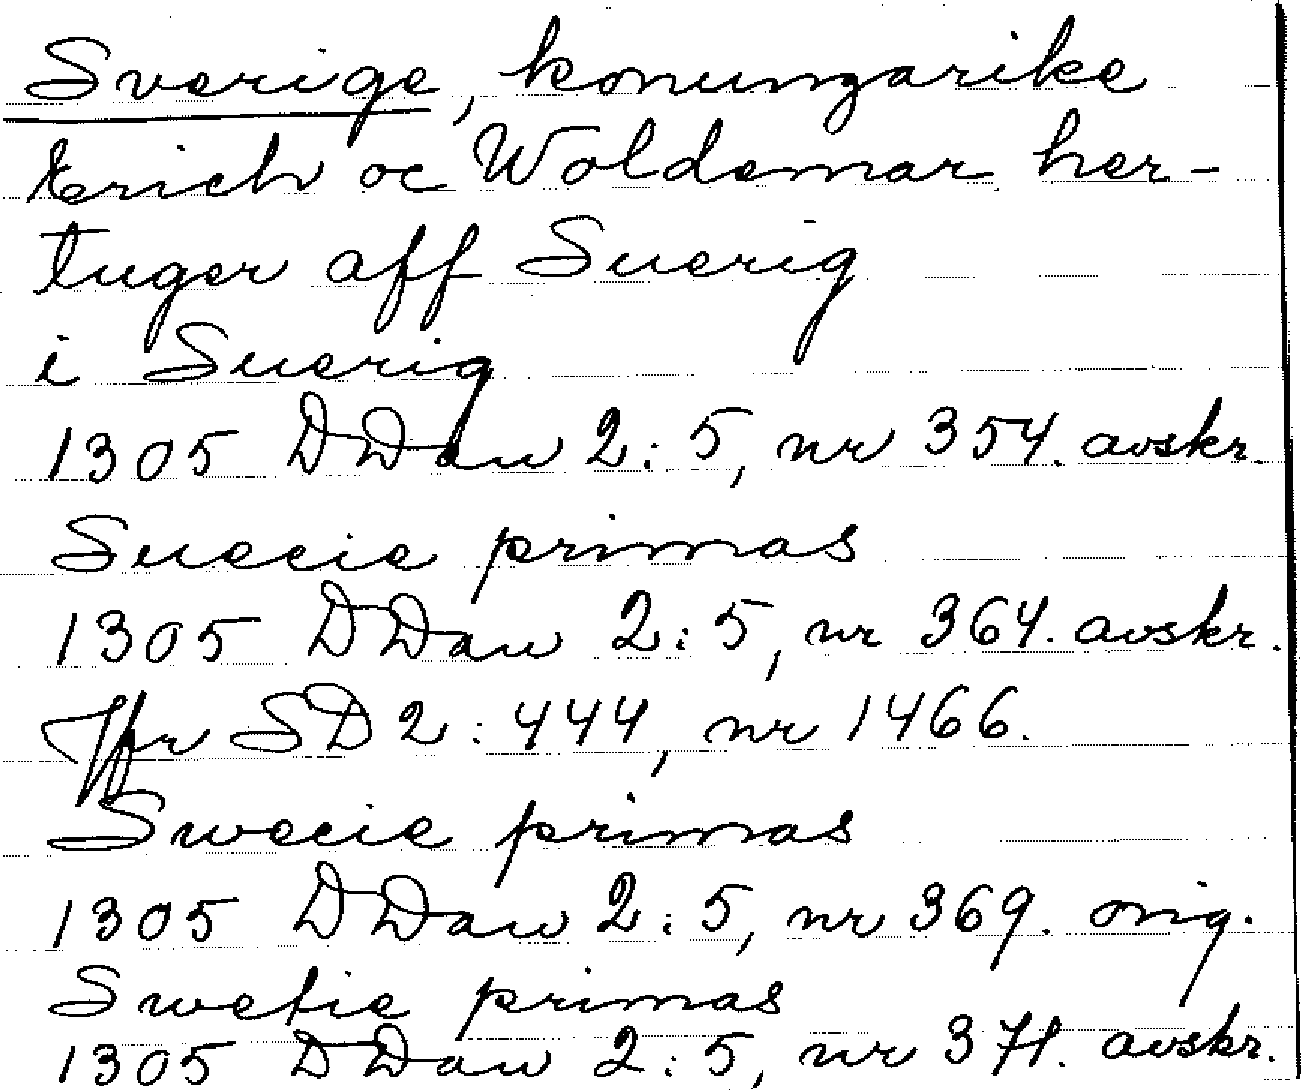 Sverige, konungarike
Erich oc Woldemar her-
tuger aff Suerig
i Suerig
1305 DDan 2:5, nr 354. avskr.
Suecie primas
1305 DDan 2:5, nr 364. avskr.
Jfr SD 2:444, nr 1466.
Swecie primas
1305 DDan 2:5, nr 369. orig.
Swetie primas
1305 DDan 2:5, nr 371. avskr.